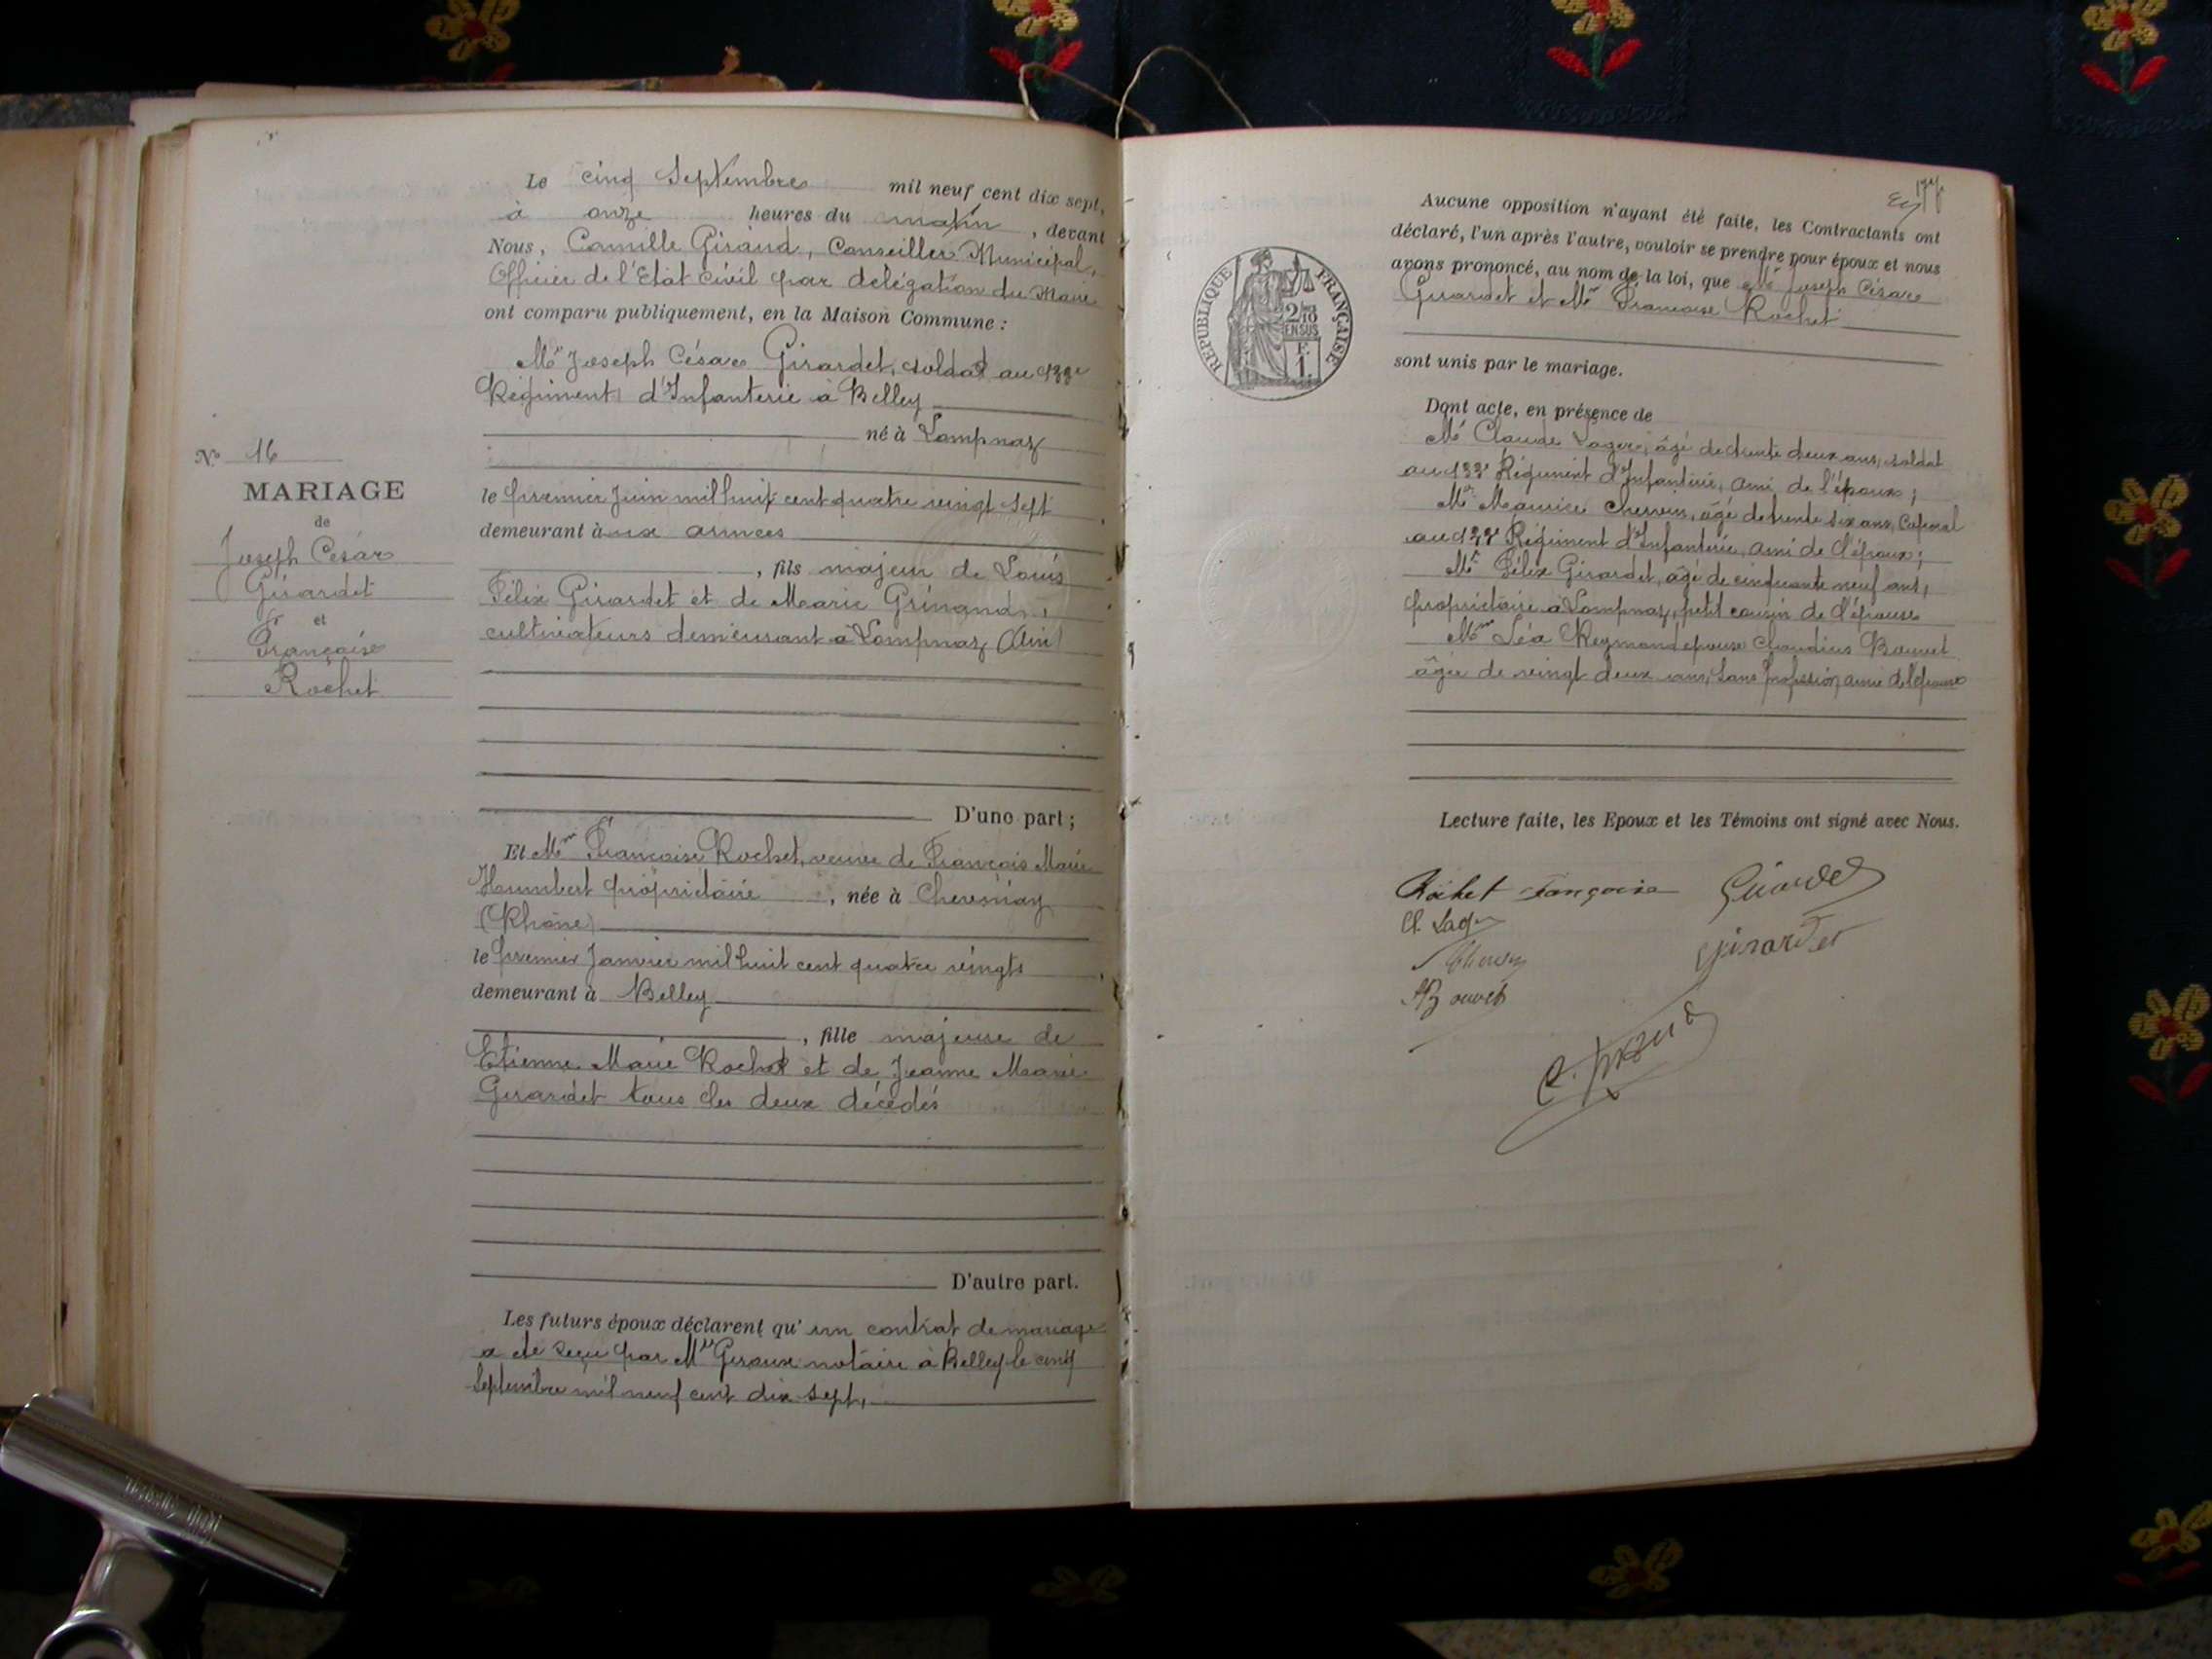 Le cinq Septembre mil neuf cent dix sept,
à onze heures du matin, devant
Nous, Camille Giraud, Conseiller Municipal,
Officier de l'Etat Civil par délégation du Maire
ont comparu publiquement, en la Maison Commune :
Mr Joseph César Girardet, soldat au 133e
Régiment d'Infanterie à Belley
né à Lompnaz
le premier Juin mil huit cent quatre vingt sept
demeurant aux armées
, fils majeur de Louis
Félix Girardet et de Marie Grinand,
cultivateurs demeurant à Lompnaz (Ain)
D'une part ;
Et Mme Françoise Rochet, veuve de François Marie
Humbert propriétaire, née à
(Rhône)
le premier Janvier mil huit cent quatre vingts
demeurant à Belley
, fille majeure de
Etienne Marie Rochet et de Jeanne Marie
Girardet tous les deux décédés
D'autre part.
Les futurs époux déclarent qu'un contrat de mariage
a été reçu par Me notaire à Belley le cinq
Septembre mil neuf cent dix sept,
No 16
MARIAGE
de
Joseph César
Girardet
et
Françoise
Rochet
REPUBLIQUE FRANÇAISE
2/10
EN SUS
F.
1.
Aucune opposition n'ayant été faite, les Contractants ont
déclaré, l'un après l'autre, vouloir se prendre pour époux et nous
avons prononcé, au nom de la loi, que Mr Joseph César
Girardet et Me Françoise Rochet
sont unis par le mariage.
Dont acte, en présence de
Mr Claude Lager, âgé de trente deux ans, soldat
au 133e Régiment d'Infanterie, ami de l'époux ;
Mr Maurice Chervin, âgé de trente six ans, Caporal
au 133e Régiment d'Infanterie, ami de l'époux ;
Mr Félix Girardet, âgé de cinquante neuf ans,
propriétaire à Lompnaz, petit cousin de l'épouse
Mme Léa Reymond épouse Claudius Bouvet
âgée de vingt deux ans, sans profession, amie de l'épouse
Lecture faite, les Epoux et les Témoins ont signé avec Nous.
Rochet Françoise Girardet
Cl. Lager
Chervin Girardet
Bouvet
C. Giraud